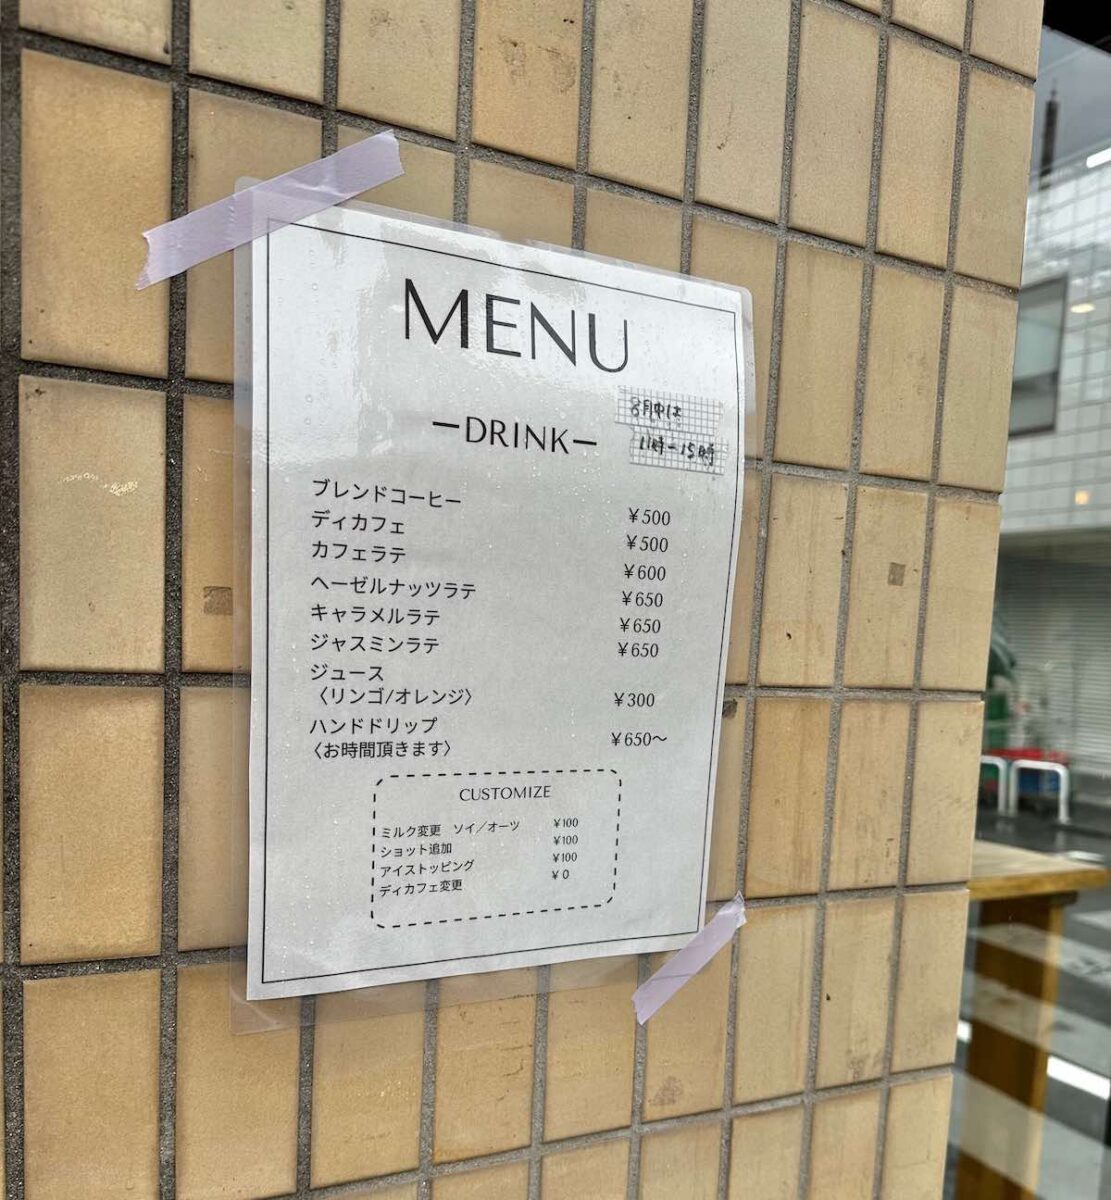 MENU
8月中は
11時-15時
-DRINK-
ブレンドコーヒー ¥500
ディカフェ ¥500
カフェラテ ¥600
ヘーゼルナッツラテ ¥650
キャラメルラテ ¥650
ジャスミンラテ ¥650
ジュース
〈リンゴ/オレンジ〉 ¥300
ハンドドリップ ¥650〜
〈お時間頂きます〉
CUSTOMIZE
ミルク変更 ソイ/オーツ ¥100
ショット追加 ¥100
アイストッピング ¥100
ディカフェ変更 ¥0